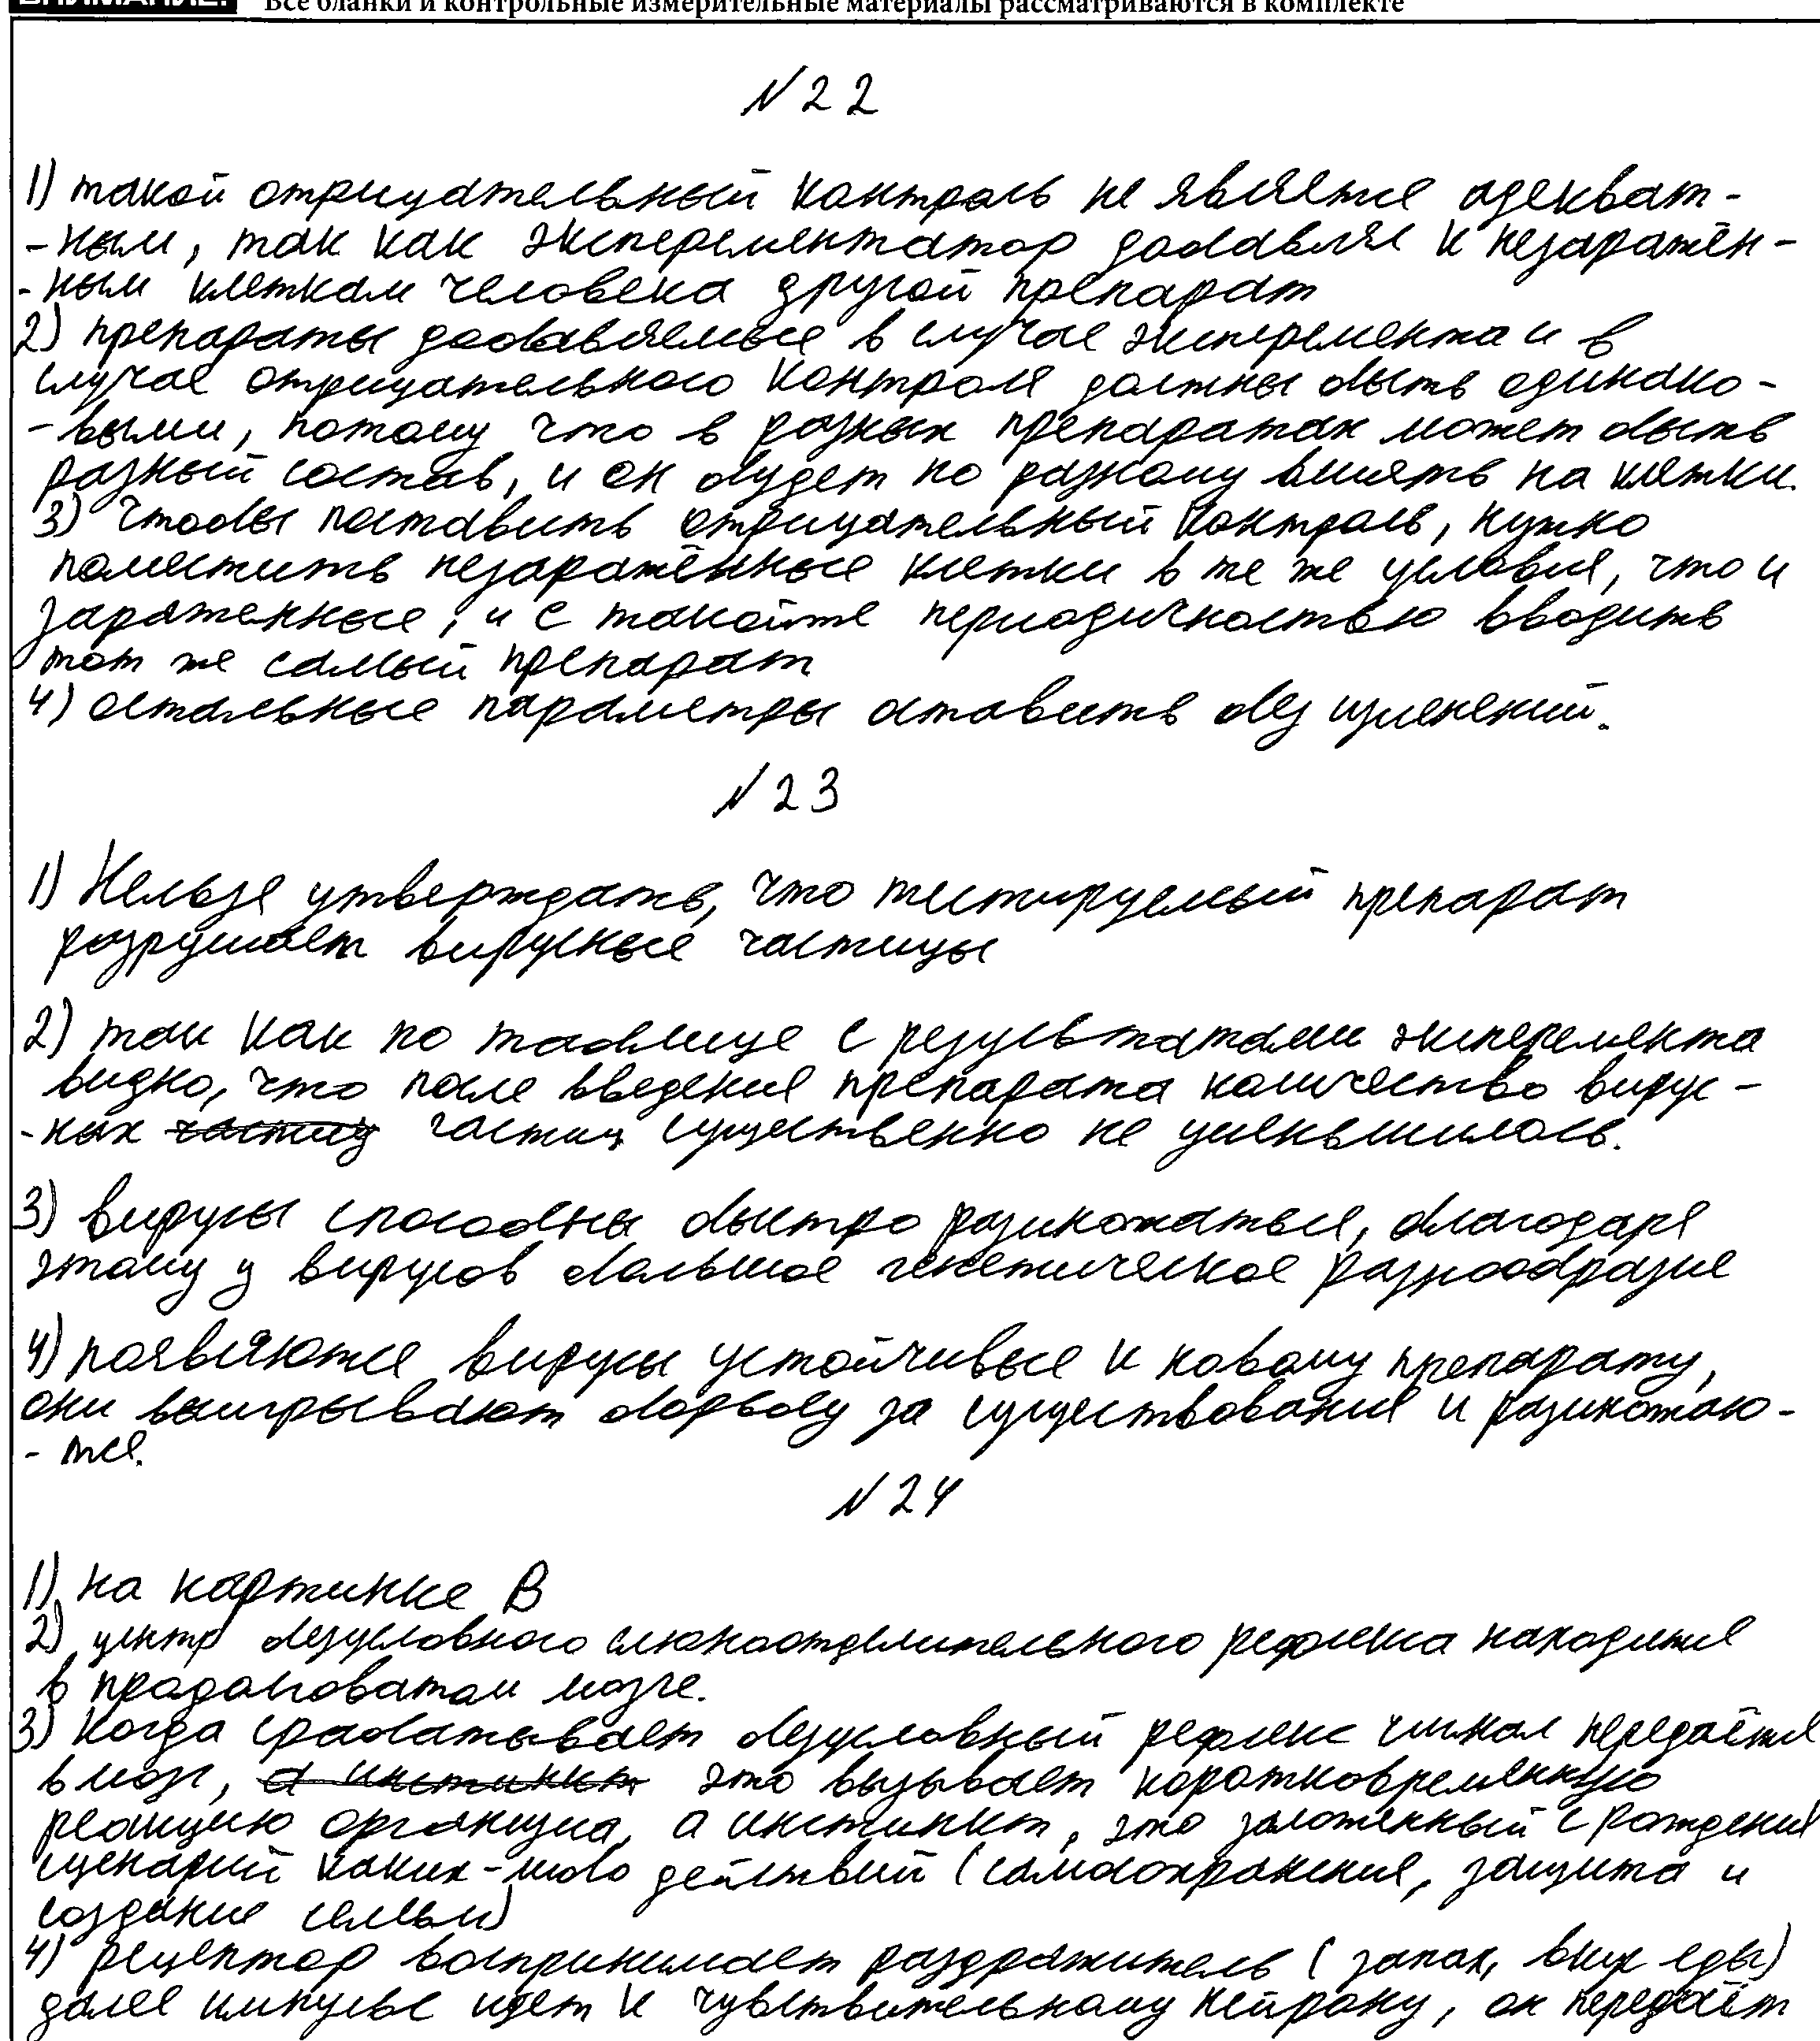 ВНИМАНИЕ! Все бланки и контрольные измерительные материалы рассматриваются в комплекте
№22
1) такой отрицательный контроль не является адекват-
-ным, так как эксперементатор добавлял к незаражён-
-ным клеткам человека другой препарат
2) препараты добавляемые в случае эксперемента и в
случае отрицательного контроля должны быть одинако-
-выми, потому что в разных препаратах может быть
разный состав, и он будет по разному влиять на клетки.
3) чтобы поставить отрицательный контроль, нужно
поместить незаражённые клетки в те же условия, что и
зараженные, и с такойже периодичностью вводить
тот же самый препарат
4) остальные параметры оставить без изменений.
№23
1) Нельзя утверждать, что тестируемый препарат
разрушает вирусные частицы
2) так как по таблице с результатами эксперемента
видно, что после введения препарата количество вирус-
-ных частиц частиц существенно не уменьшилось.
3) вирусы способны быстро размножаться, благодаря
этому у вирусов большое генетическое разнообразие
4) появляются вирусы устойчивые к новому препарату,
они выигрывают борьбу за существования и размножаю-
-тся.
№24
1) на картинке В
2) центр безусловного слюноотделительного рефлекса находится
в продолговатом мозге.
3) когда срабатывает безусловный рефлекс сигнал передаётся
в мозг, а инстинкт это вызывает коротковременную
реакцию организма, а инстинкт, это заложенный с рождения
сценарий каких-либо действий (самосохранения, защита и
создание семьи)
4) рецептор воспринимает раздражитель (запах, вкус еды)
далее импульс идет к чувствительному нейрону, он передаёт